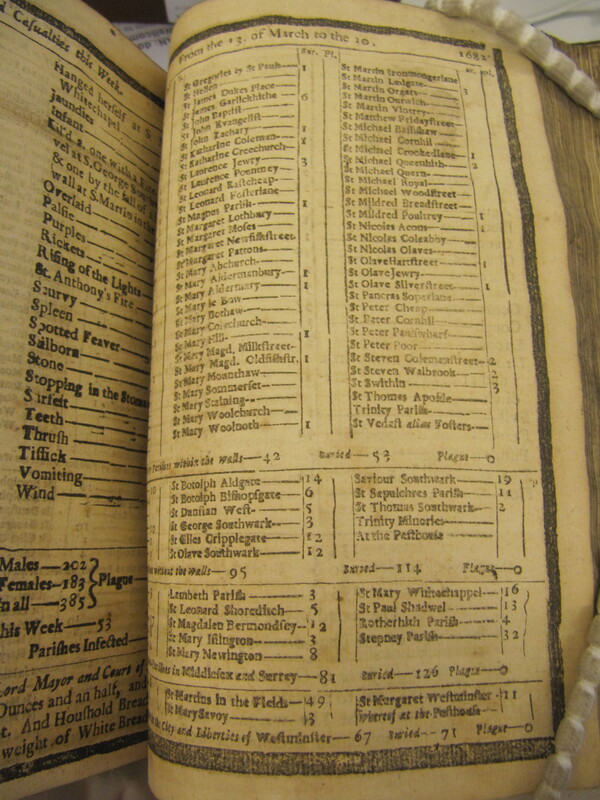 d Casualties this Week.
Hanged herself at S
Whitechapel
Jaundies
Infant
Kill'd 2. one with a
vel at S. George
& one by the fall of
wall at S. Martin in the
Overlaid
Palsie
Purples
Rickets
Rising of the Lights
St. Anthony's Fire
Scurvy
Spleen
Spotted Feaver
Stilborn
Stone
Stopping in the Stom
Surfeit
Teeth
Thrush
Tissick
Vomiting
Wind
Males — 202
Females — 183
In all — 385
Plague
this Week — 53
Parishes Infected
Lord Mayor and Court of
Ounces and an half, and
t. And Houshold Bread
weight of White Bread
From the 13. of March to the 20. 1682
Bur. Pl.
St Gregories by St Pauls — 1
St Hellen
St James Dukes Place
St James Garlickhithe — 6
St John Baptist
St John Evangelist
St John Zachary — 1
St Katharine Coleman — 1
St Katharine Creechurch
St Laurence Jewry — 3
St Laurence Pountney
St Leonard Eastcheap
St Leonard Fosterlane
St Magnus Parish — 1
St Margaret Lothbury
St Margaret Moses
St Margaret Newfishstreet
St Margaret Pattons
St Mary Abchurch
St Mary Aldermanbury — 1
St Mary Aldermary — 1
St Mary le Bow
St Mary Bothaw
St Mary Colechurch
St Mary Hill — 1
St Mary Magd. Milkstreet
St Mary Magd. Oldfishstr. 1
St Mary Mounthaw
St Mary Sommerset
St Mary Staining
St Mary Woolchurch
St Mary Woolnoth — 1
St Martin Ironmongerlane
St Martin Ludgate
St Martin Orgars
St Martin Outwich
St Martin Vintrey
St Matthew Fridaystreet
St Michael Bassishaw
St Michael Cornhil
St Michael Crookedlane — 1
St Michael Queenhith — 2
St Michael Quern
St Michael Royal
St Michael Woodstreet
St Mildred Breadstreet
St Mildred Poultrey — 1
St Nicolas Acons — 1
St Nicolas Coleabby
St Nicolas Olaves
St Olave Hartstreet — 1
St Olave Jewry
St Olave Silverstreet — 1
St Pancras Soperlane
St Peter Cheap
St Peter Cornhil
St Peter Paulswharf
St Peter Poor
St Steven Colemanstreet — 2
St Steven Walbrook — 2
St Swithin — 3
St Thomas Apostle
Trinity Parish
St Vedast alias Fosters
Parishes within the Walls — 42 Buried — 53 Plague — 0
St Botolph Aldgate — 14
St Botolph Bishopsgate — 6
St Dunstan West — 5
St George Southwark — 3
St Giles Cripplegate — 12
St Olave Southwark — 12
Saviour Southwark — 19
St Sepulchres Parish — 11
St Thomas Southwark — 2
Trinity Minories
At the Pesthouse
without the Walls — 95 Buried — 114 Plague — 0
Lambeth Parish — 3
St Leonard Shoreditch — 5
St Magdalen Bermondsey — 12
St Mary Islington — 3
St Mary Newington — 8
St Mary Whitechappel — 16
St Paul Shadwel — 13
Rotherhith Parish — 4
Stepney Parish — 32
Parishes in Middlesex and Surrey — 81 Buried — 126 Plague — 0
St Martins in the Fields — 49
St Mary Savoy — 3
St Margaret Westminster — 11
Whereof at the Pesthouse
in the City and Liberties of Westminster — 67 Buried — 71 Plague — 0